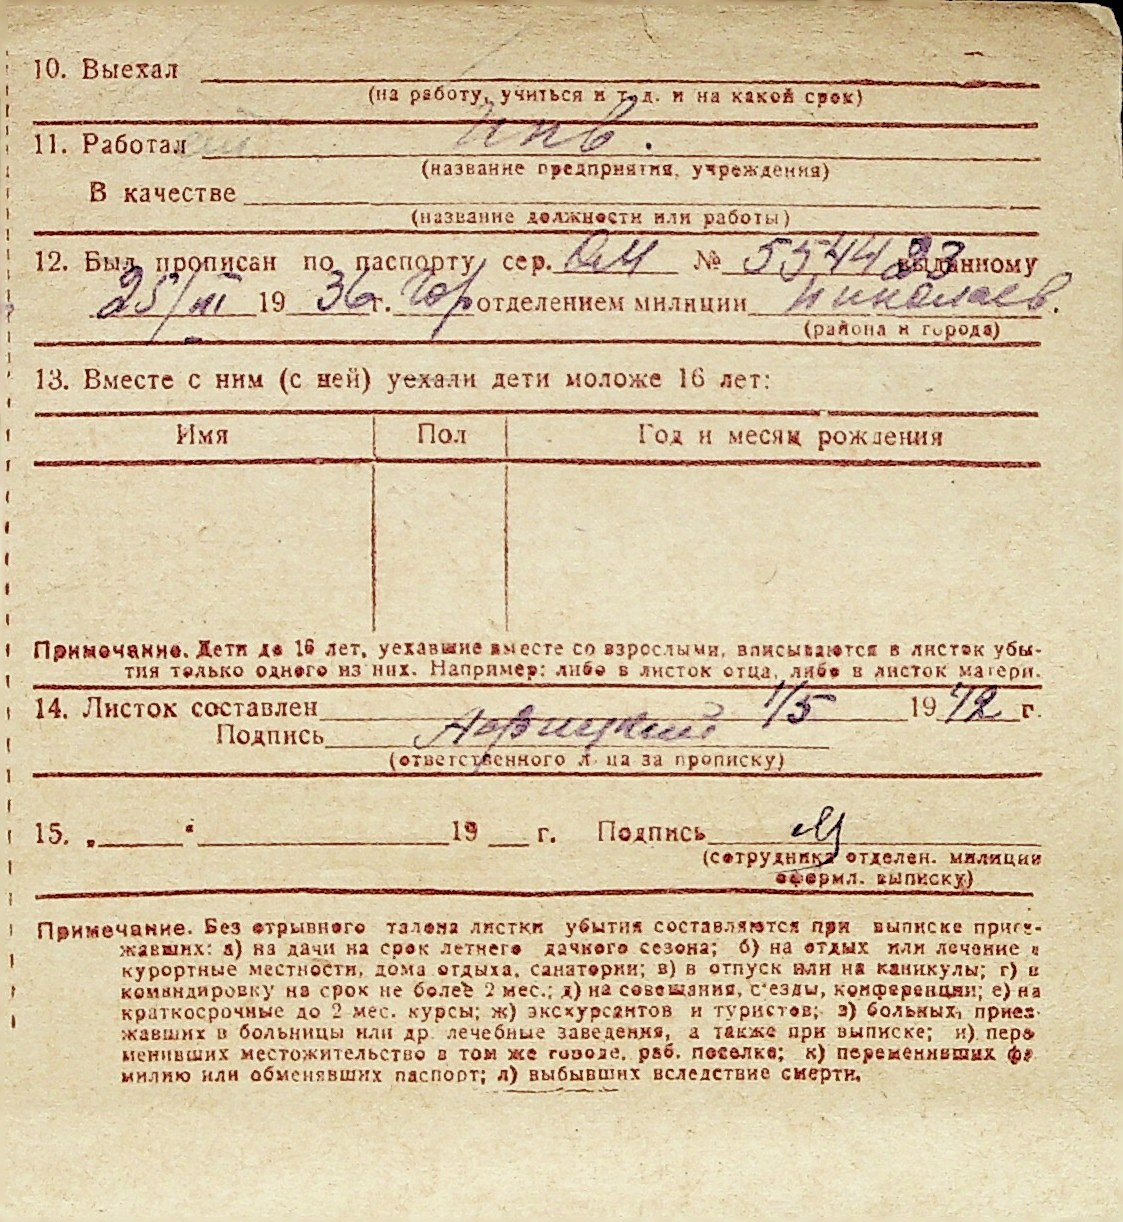 10. Выехал
(на работу, учиться и т. д. и на какой срок)
11. Работал Инв.
(название предприятия, учреждения)
В качестве
(название должности или работы)
12. Был прописан по паспорту сер. № 554423 выданному
25/III 1936 г. Гор отделением милиции Николаев.
(района и города)
13. Вместе с ним (с ней) уехали дети моложе 16 лет:
Имя Пол Год и месяц рождения
Примечание. Дети до 16 лет, уехавшие вместе со взрослыми, вписываются в листок убы-
тия только одного из них. Например: либо в листок отца, либо в листок матери.
14. Листок составлен 1/5 1942 г.
Подпись
(ответственного лица за прописку)
15. „ “ 19 г. Подпись
(сотрудника отделен. милиции
оформл. выписку)
Примечание. Без отрывного талона листки убытия составляются при выписке приез-
жавших: а) на дачи на срок летнего дачного сезона; б) на отдых или лечение в
курортные местности, дома отдыха, санатории; в) в отпуск или на каникулы; г) в
командировку на срок не более 2 мес.; д) на совещания, с'езды, конференции; е) на
краткосрочные до 2 мес. курсы; ж) экскурсантов и туристов; з) больных, приез-
жавших в больницы или др. лечебные заведения, а также при выписке; и) пере
менивших местожительство в том же городе, раб. поселке; к) переменивших фа
милию или обменявших паспорт; л) выбывших вследствие смерти.